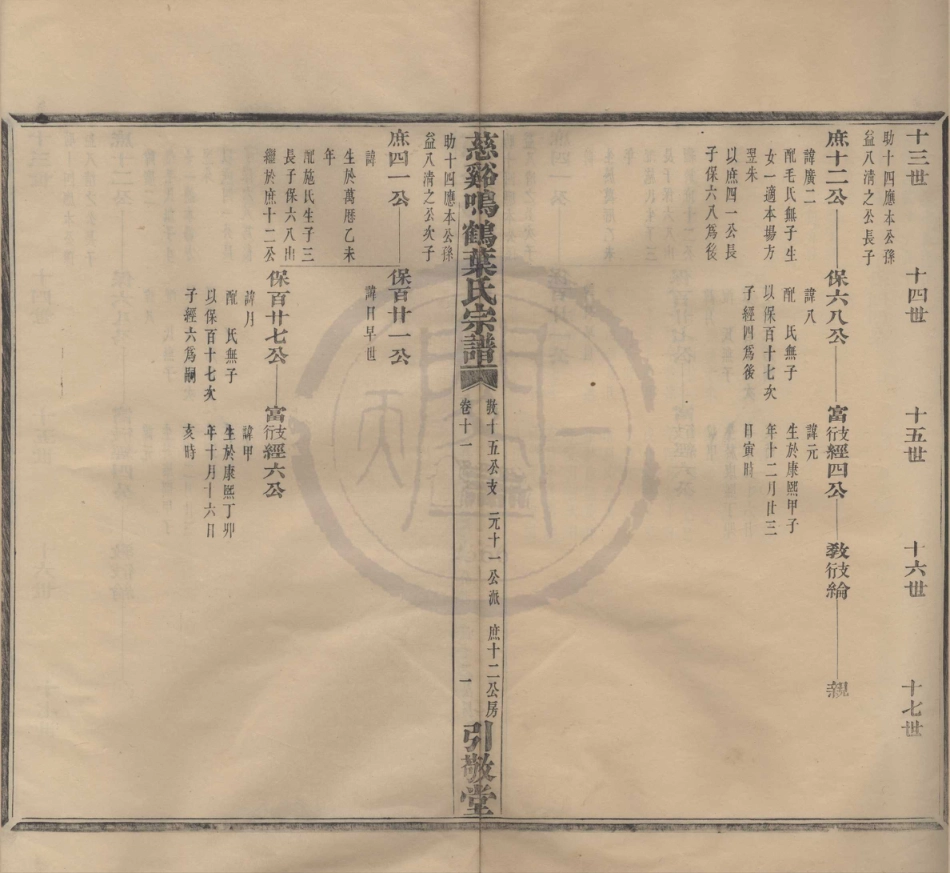 十三世
十四世
十五世
十六世
十七世
助十四應本公孫
益八清之公長子
庶十二公
保六八公
富行支經四公
教行支綸
親
諱廣二
配毛氏無子生
女一適本場方
翌朱
以庶四一公長
子保六八爲後
諱八
配 氏無子
以保百十七次
子經四爲後
諱元
生於康熙甲子
年十二月廿三
日寅時
慈谿鳴鶴葉氏宗譜
卷十一
敦十五公支 元十一公派 庶十二公房
一
引敬堂
助十四應本公孫
益八清之公次子
庶四一公
保百廿一公
諱
生於萬厯乙未
年
配施氏生子三
長子保六八出
繼於庶十二公
諱日早世
保百十七公
富行支經六公
諱月
配 氏無子
以保百十七次
子經六爲嗣
諱甲
生於康熙丁卯
年十月十六日
亥時